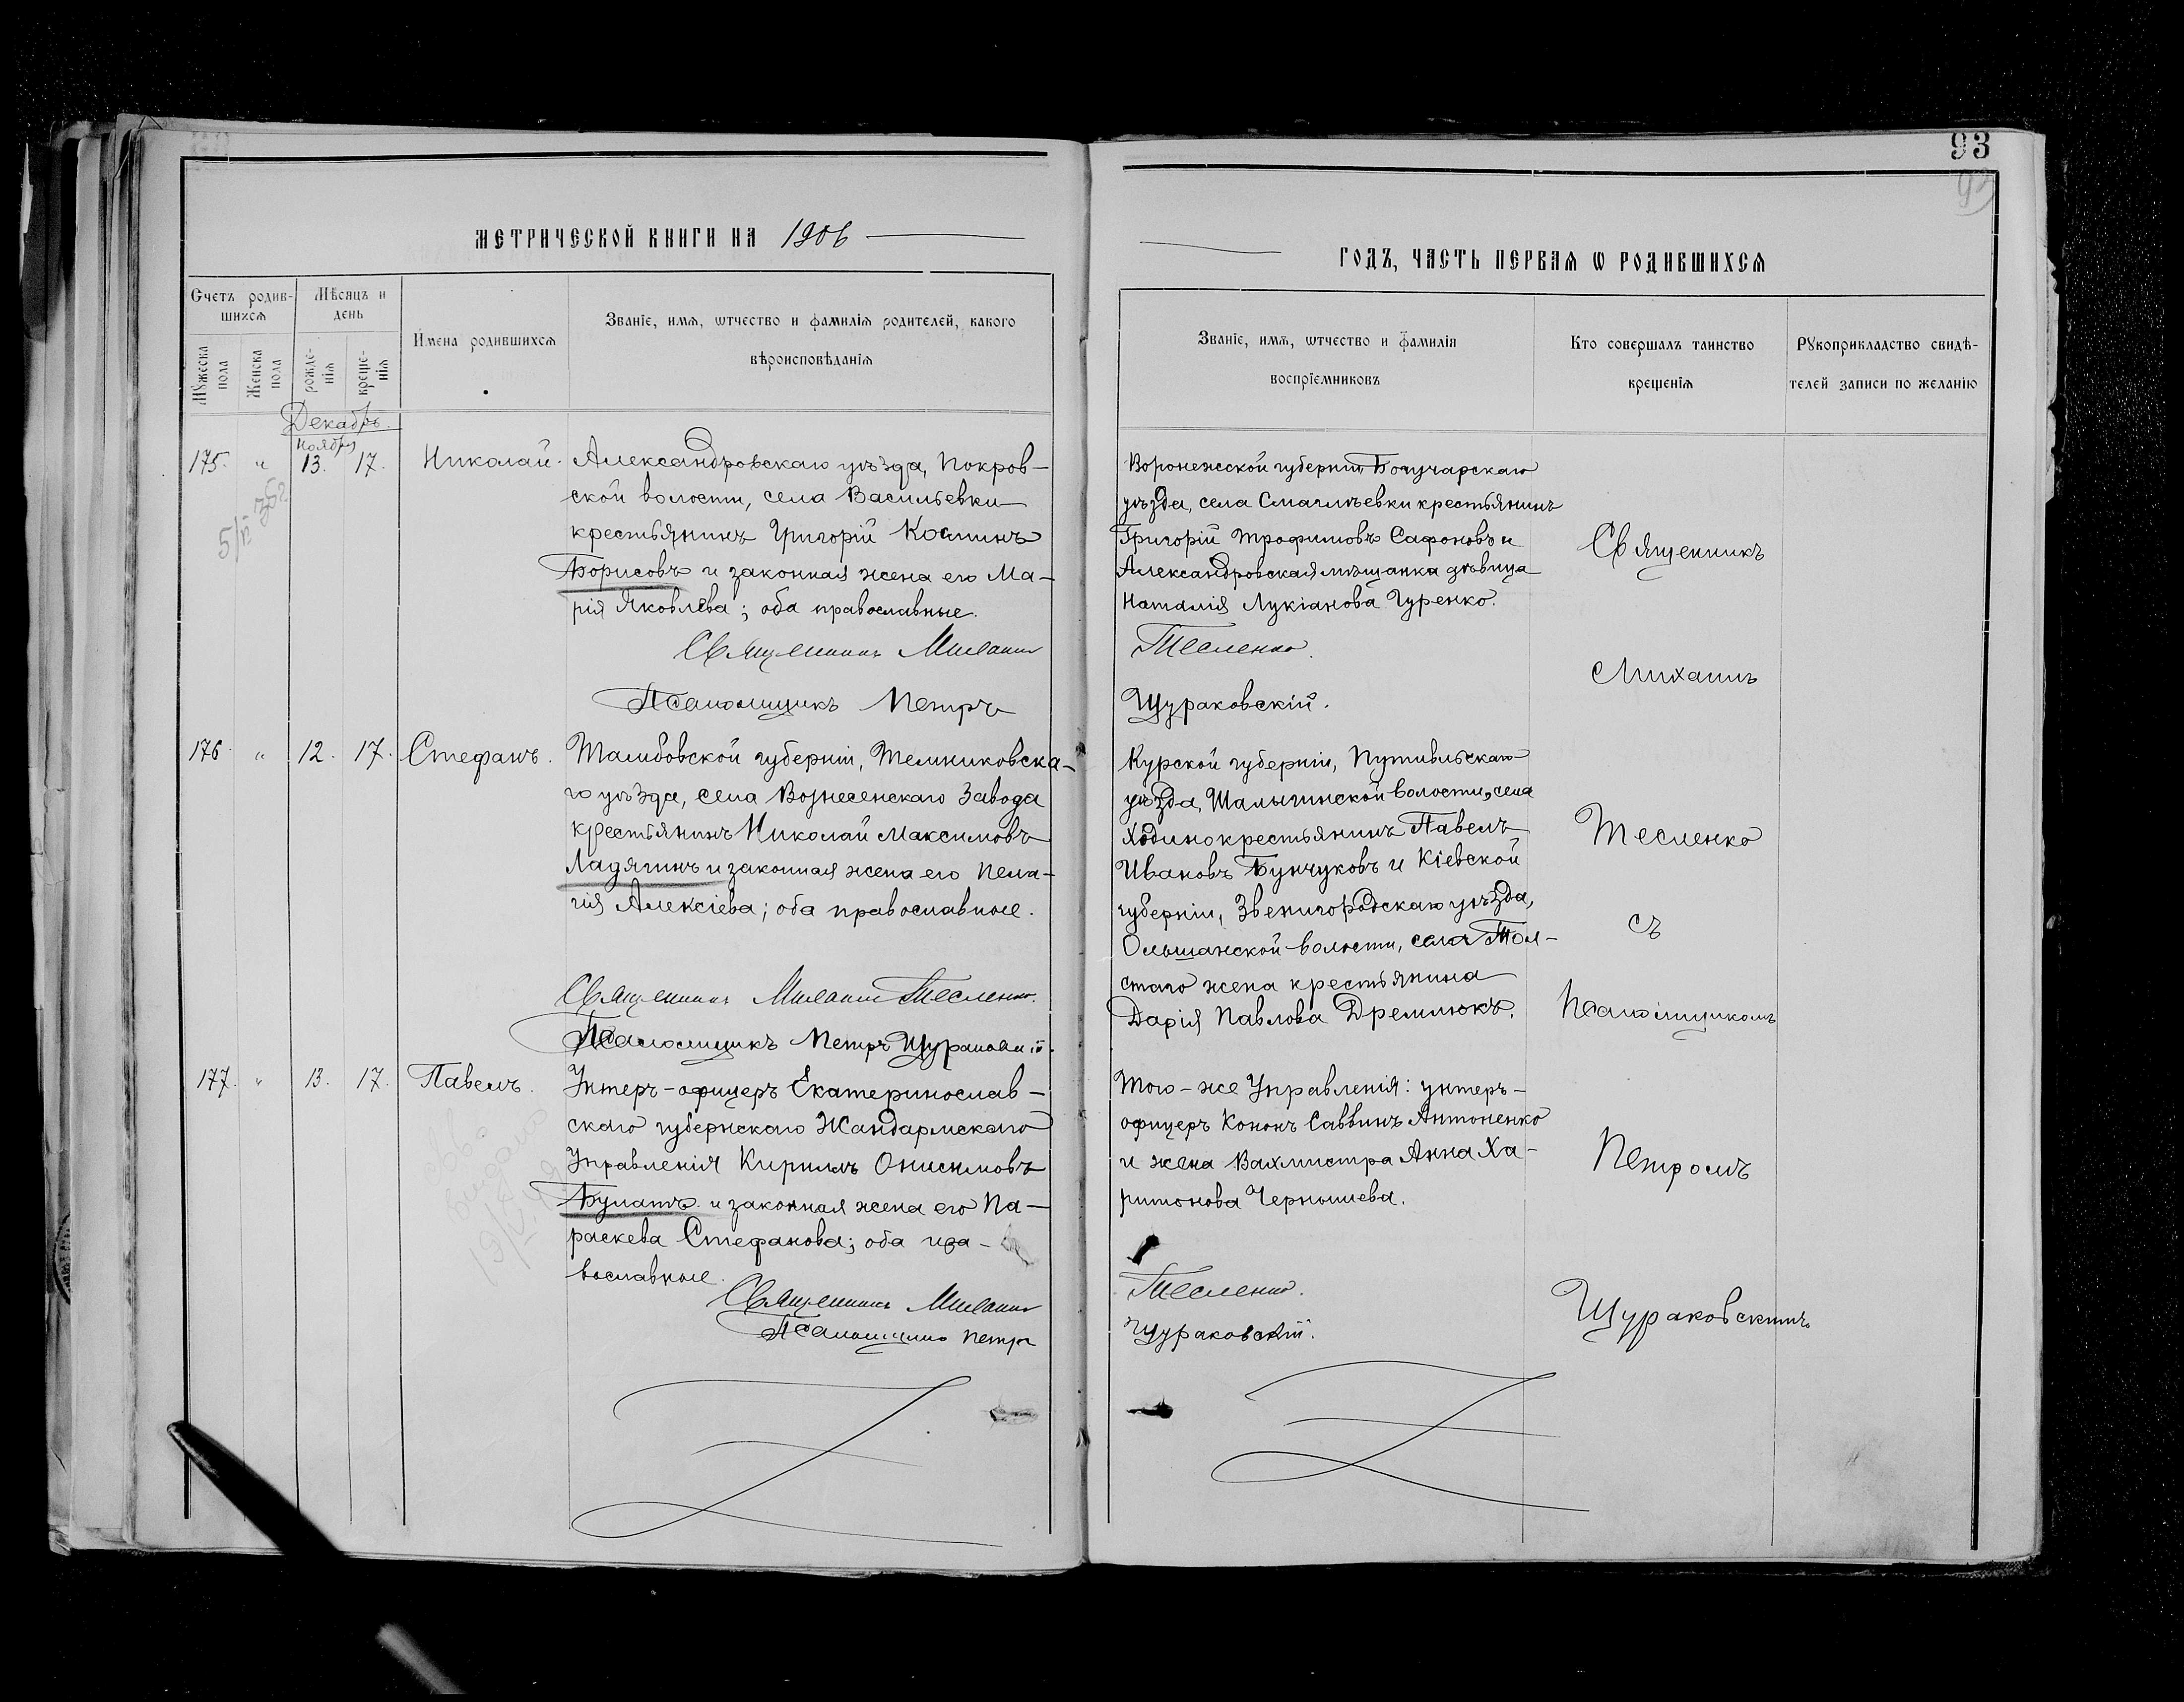 93
МЕТРИЧЕСКОЙ КНИГИ НА 1906
ГОДЪ, ЧАСТЬ ПЕРВАЯ Ѡ РОДИВШИХСЯ
Счетъ родив-
шихся
Мѣсяцъ и
день
Мужеска
пола
Женска
пола
рожде-
нія
креще-
нія
Имена родившихся
Званіе, имя, ѡтчество и фамилія родителей, какого
вѣроисповѣданія
Званіе, имя, ѡтчество и фамилія
воспріемниковъ
Кто совершалъ таинство
крещенія
Рукоприкладство свидѣ-
телей записи по желанію
Декабрь.
Ноября
175. " 13. 17. Николай.
Александровскаго уѣзда, Покров-
ской волости, села Васильевки
крестьянинъ Григорій Косминъ
Борисовъ и законная жена его Ма-
рія Яковлева; оба православные.
Священникъ Михаилъ
Псаломщикъ Петръ
Воронежской губерніи, Богучарскаго
уѣзда, села Смаглѣевки крестьянинъ
Григорій Трофимовъ Сафоновъ и
Александровская мѣщанка дѣвица
Наталія Лукіанова Гуренко.
Тесленко.
Щураковскій.
176. " 12. 17. Стефанъ.
Тамбовской губерніи, Темниковска-
го уѣзда, села Вознесенскаго Завода
крестьянинъ Николай Максимовъ
Ладягинъ и законная жена его Пела-
гія Алексіева; оба православные.
Священникъ Михаилъ Тесленко.
Псаломщикъ Петръ Щураковскій.
Курской губерніи, Путивльскаго
уѣзда, Шалыгинской волости, села
Ходино крестьянинъ Павелъ
Ивановъ Бунчуковъ и Кіевской
губерніи, Звенигородскаго уѣзда,
Ольшанской волости, села Тол-
стаго жена крестьянина
Дарія Павлова Дремлюкъ.
177. " 13. 17. Павелъ.
Унтеръ-офицеръ Екатеринослав-
скаго губернскаго Жандармскаго
Управленія Кириллъ Онисимовъ
Булатъ и законная жена его Па-
раскева Стефанова; оба пра-
вославные.
Священникъ Михаилъ
Псаломщикъ Петръ
Того-же Управленія: унтеръ-
офицеръ Кононъ Саввинъ Антоненко
и жена Вахмистра Анна Ха-
ритонова Чернышева.
Тесленко.
Щураковскій.
Священникъ
Михаилъ
Тесленко
съ
Псаломщикомъ
Петромъ
Щураковскимъ